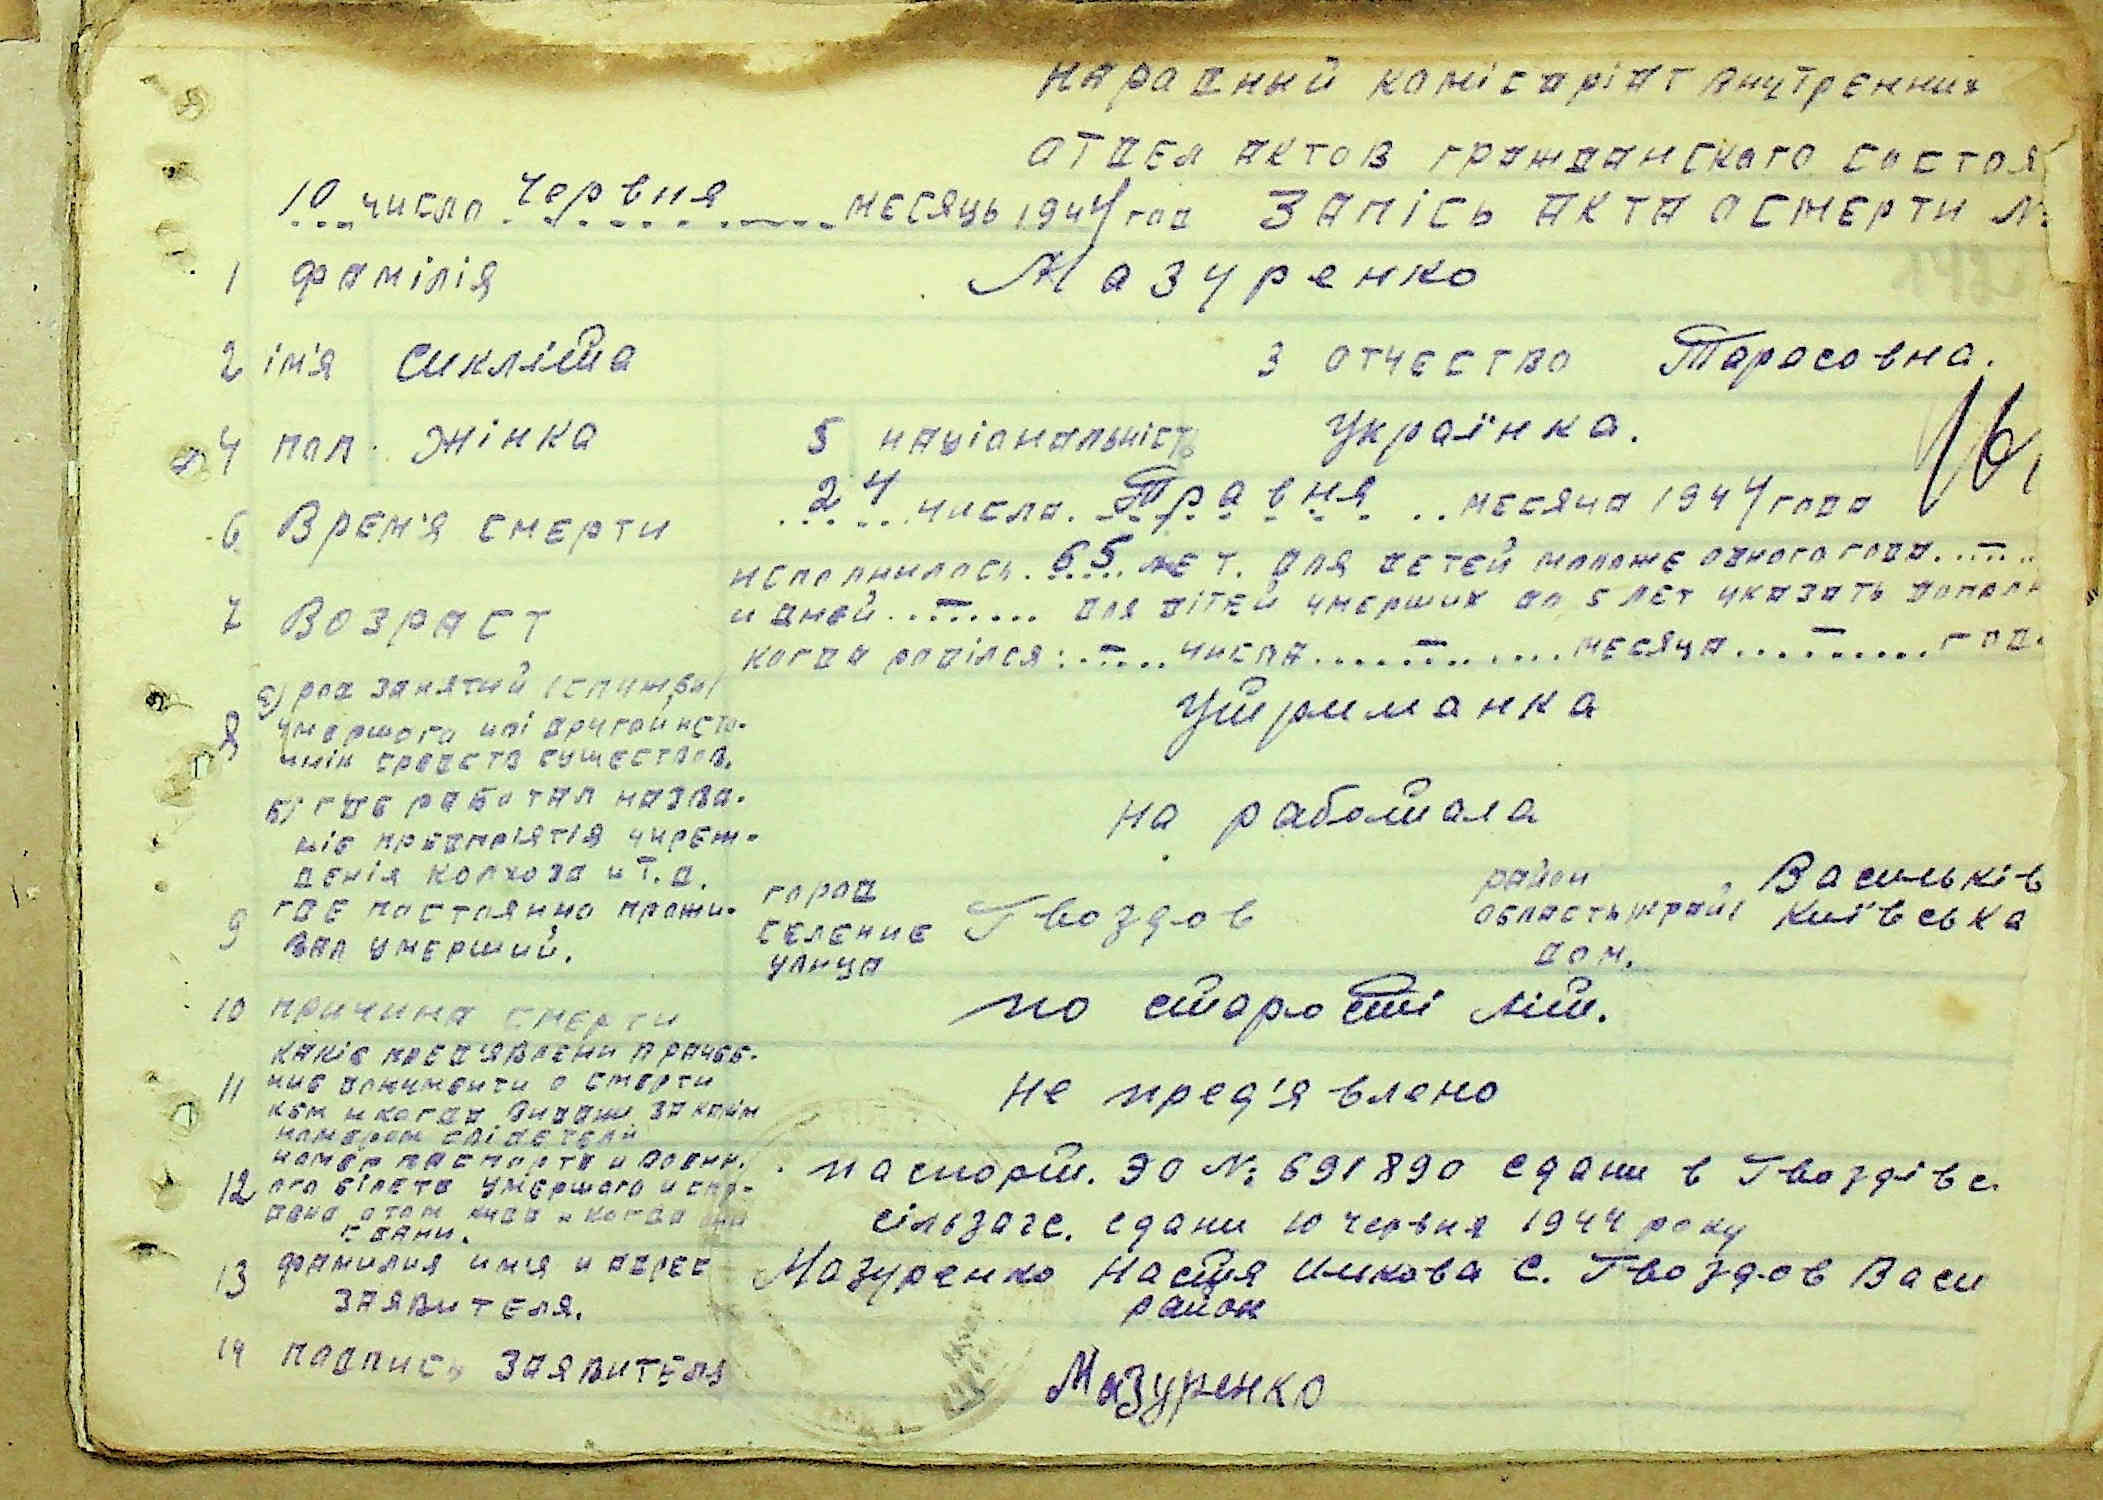 народний комісаріат внутренних
отдел актов гражданскаго состоя
10 число Червня месяць 1944 год Запісь акта о смерти №
1 фамілія Мазуренко
2 ім'я Сикліта 3 отчество Тарасовна.
4 пол. Жінка 5 націанальність Українка.
16,
6 Врем'я смерти 24 числа. Травня месяча 1944 года
7 Возраст исполнилось 65 лет. для детей моложе одного года
и дней для дітей умерших до 5 лет указать дополн
когда роділся: числа месяча год.
8 а) род занятий (служби) умершого илі другой исто- Утриманка
чнік средств существов.
б) где работал назва- на работала
ніе предпріятія учреж-
денія колхоза и т.д.
9 где постоянно прожи- город селение Гвоздов район Васильків
вал умерший. улица область (край) Київська
дом.
10 причина смерти по старості літ.
11 какіе пред'явлени врачеб- не пред'явлено
ние документи о смерти
кем и когда видани, за каким
номером свідетели
12 номер паспорта и воен. паспорт. ЭО №: 691890 сдани в Гвоздівс.
ого білета умершого и спр- сільзагс. сдани 10 червня 1944 року
авка о том куда и когда они
сдани.
13 фамилия имя и адрес Мазуренко Настя Икова С. Гвоздов Васи
заявителя. район
14 подпись заявителя Мазуренко